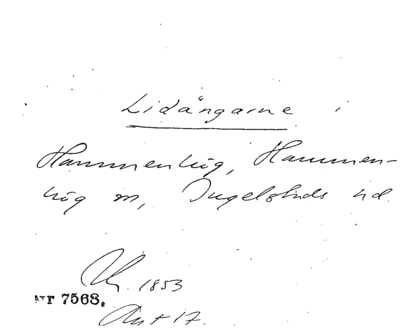 Lidängarne i
Hammenhög, Hammen-
hög sn, Ingelstads hd.
1853
Nr 7568,
Ant 17.